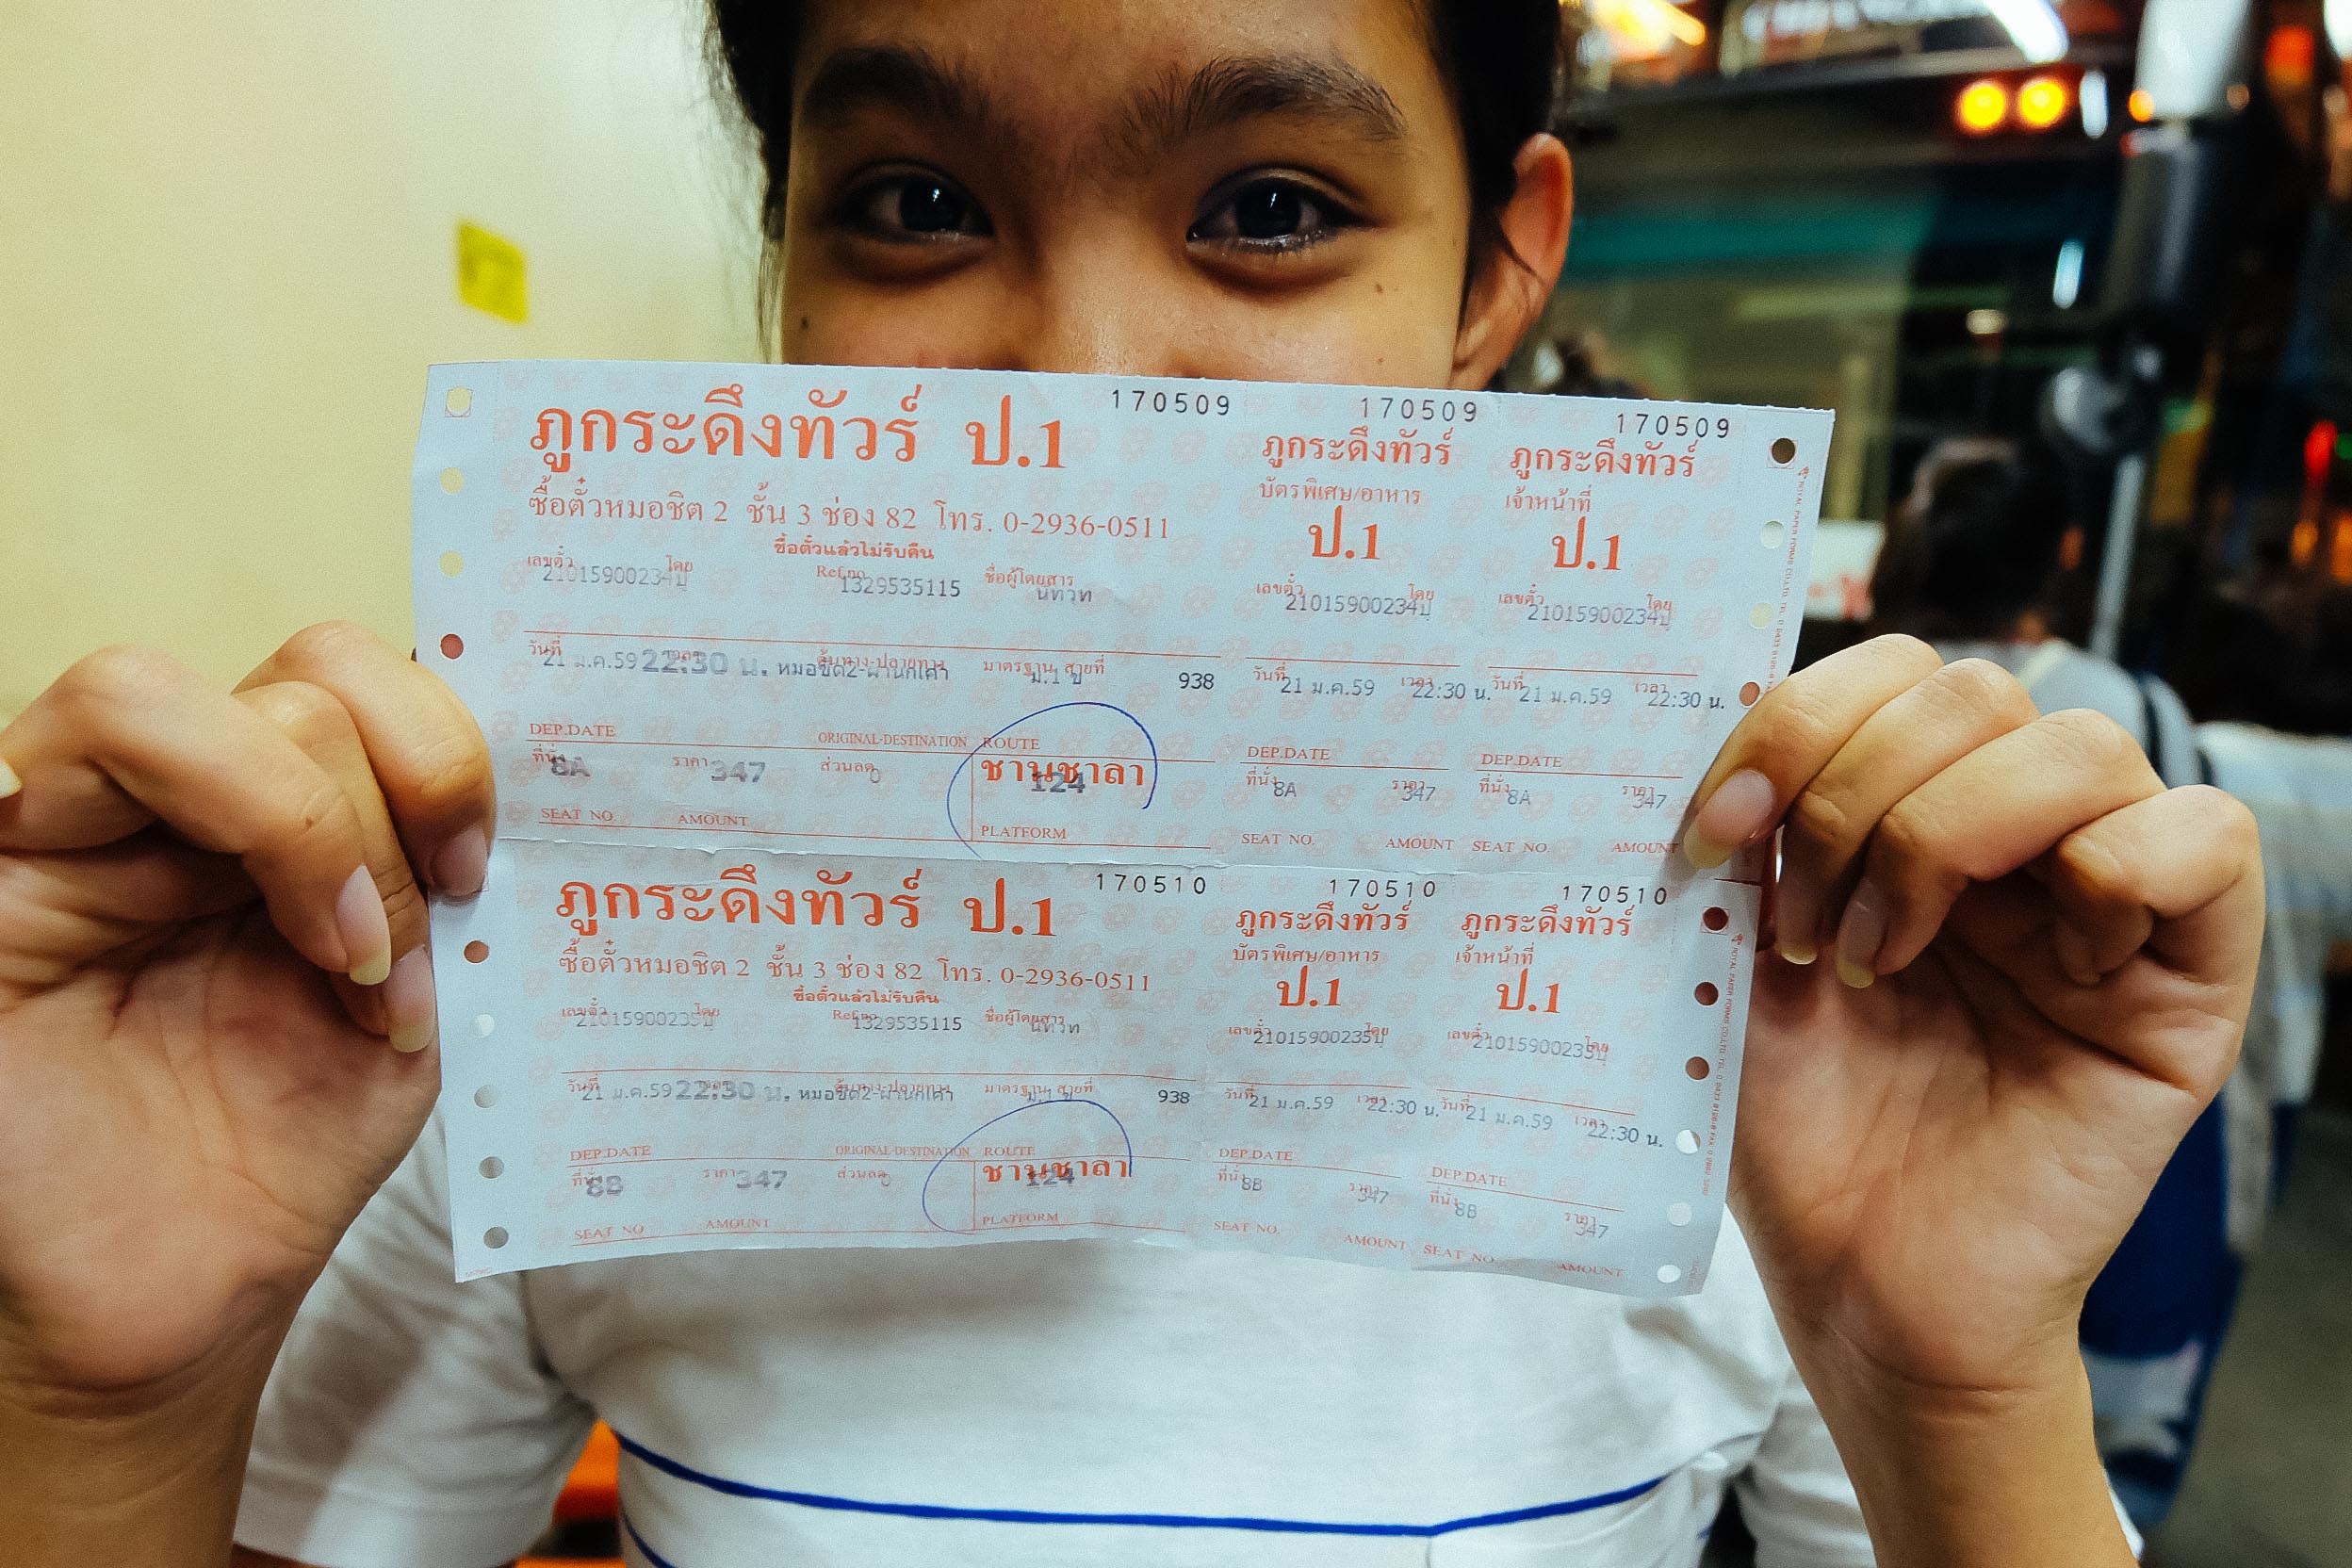 ภูกระดึงทัวร์ ป.1 170509
ซื้อตั๋วหมอชิต 2 ชั้น 3 ช่อง 82 โทร. 0-2936-0511
ซื้อตั๋วแล้วไม่รับคืน
เลขตั๋ว 21015900234ปุ โดย Ref.no 1329535115 ชื่อผู้โดยสาร
วันที่ 21 ม.ค.59 เวลา 22:30 น. ต้นทาง-ปลายทาง หมอชิต2-ผานกเค้า มาตรฐาน ม.1 ข สายที่ 938
DEP.DATE ORIGINAL-DESTINATION ROUTE
ที่นั่ง 8A ราคา 347 ส่วนลด 0 ชานชาลา 124
SEAT NO. AMOUNT PLATFORM
170509
ภูกระดึงทัวร์
บัตรพิเศษ/อาหาร
ป.1
เลขตั๋ว 21015900234ปุ โดย
วันที่ 21 ม.ค.59 เวลา 22:30 น.
DEP.DATE
ที่นั่ง 8A ราคา 347
SEAT NO. AMOUNT
170509
ภูกระดึงทัวร์
เจ้าหน้าที่
ป.1
เลขตั๋ว 21015900234ปุ โดย
วันที่ 21 ม.ค.59 เวลา 22:30 น.
DEP.DATE
ที่นั่ง 8A ราคา 347
SEAT NO. AMOUNT
ภูกระดึงทัวร์ ป.1 170510
ซื้อตั๋วหมอชิต 2 ชั้น 3 ช่อง 82 โทร. 0-2936-0511
ซื้อตั๋วแล้วไม่รับคืน
เลขตั๋ว 21015900235ปุ โดย Ref.no 1329535115 ชื่อผู้โดยสาร
วันที่ 21 ม.ค.59 เวลา 22:30 น. ต้นทาง-ปลายทาง หมอชิต2-ผานกเค้า มาตรฐาน ม.1 ข สายที่ 938
DEP.DATE ORIGINAL-DESTINATION ROUTE
ที่นั่ง 8B ราคา 347 ส่วนลด 0 ชานชาลา 124
SEAT NO. AMOUNT PLATFORM
170510
ภูกระดึงทัวร์
บัตรพิเศษ/อาหาร
ป.1
เลขตั๋ว 21015900235ปุ โดย
วันที่ 21 ม.ค.59 เวลา 22:30 น.
DEP.DATE
ที่นั่ง 8B ราคา 347
SEAT NO. AMOUNT
170510
ภูกระดึงทัวร์
เจ้าหน้าที่
ป.1
เลขตั๋ว 21015900235ปุ โดย
วันที่ 21 ม.ค.59 เวลา 22:30 น.
DEP.DATE
ที่นั่ง 8B ราคา 347
SEAT NO. AMOUNT